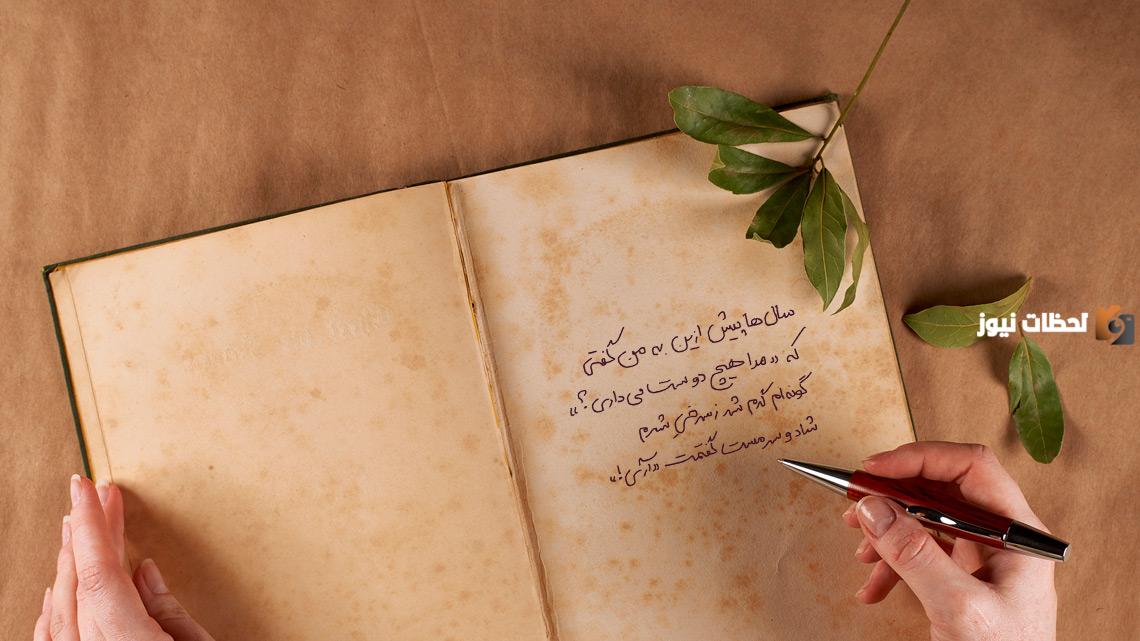 سال‌ها پیش ازین به من گفتی
که «مرا هیچ دوست می‌داری؟»
گونه‌ام گرم شد ز سرخیِ شرم
شاد و سرمست گفتمت «آری!»
لحظات نیوز